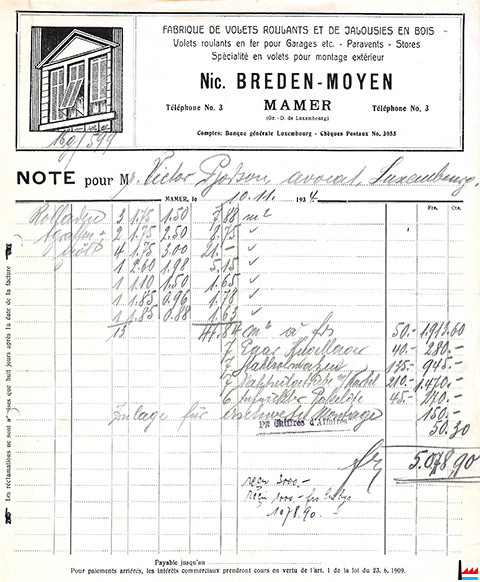 FABRIQUE DE VOLETS ROULANTS ET DE JALOUSIES EN BOIS
Volets roulants en fer pour Garages etc. - Paravents - Stores
Spécialité en volets pour montage extérieur
Nic. BREDEN-MOYEN
Téléphone No. 3 MAMER Téléphone No. 3
(Gr.-D. de Luxembourg)
Comptes: Banque générale Luxembourg - Chèques Postaux No. 3053
169/599
NOTE pour Mr. Victor Bodson, avocat, Luxembourg.
MAMER, le 10.11. 1934.
Frs. Cts.
Rolladen 3 1.75 1.50 7.88 m²
2 1.75 2.50 8.75 "
4 1.75 3.00 21.- "
1 2.60 1.98 5.15 "
1 1.10 1.50 1.65 "
1 1.85 0.96 1.78 "
1 1.85 0.88 1.63 "
13 m² à frs 50.- 1.913.60
7 40.- 280.-
7 135.- 945.-
7 210.- 1.470.-
6 45.- 270.-
Zulage für Montage 150.-
Chiffres d'Affaires 50.30
frs 5.078,90
reçu 3000.-
reçu 1000.- frs
1078.90.-
Les réclamations ne sont admises que huit jours après la date de la facture
Payable jusqu'au
Pour paiements arriérés, les intérêts commerciaux prendront cours en vertu de l'art. 1 de la loi du 23. 6. 1909.